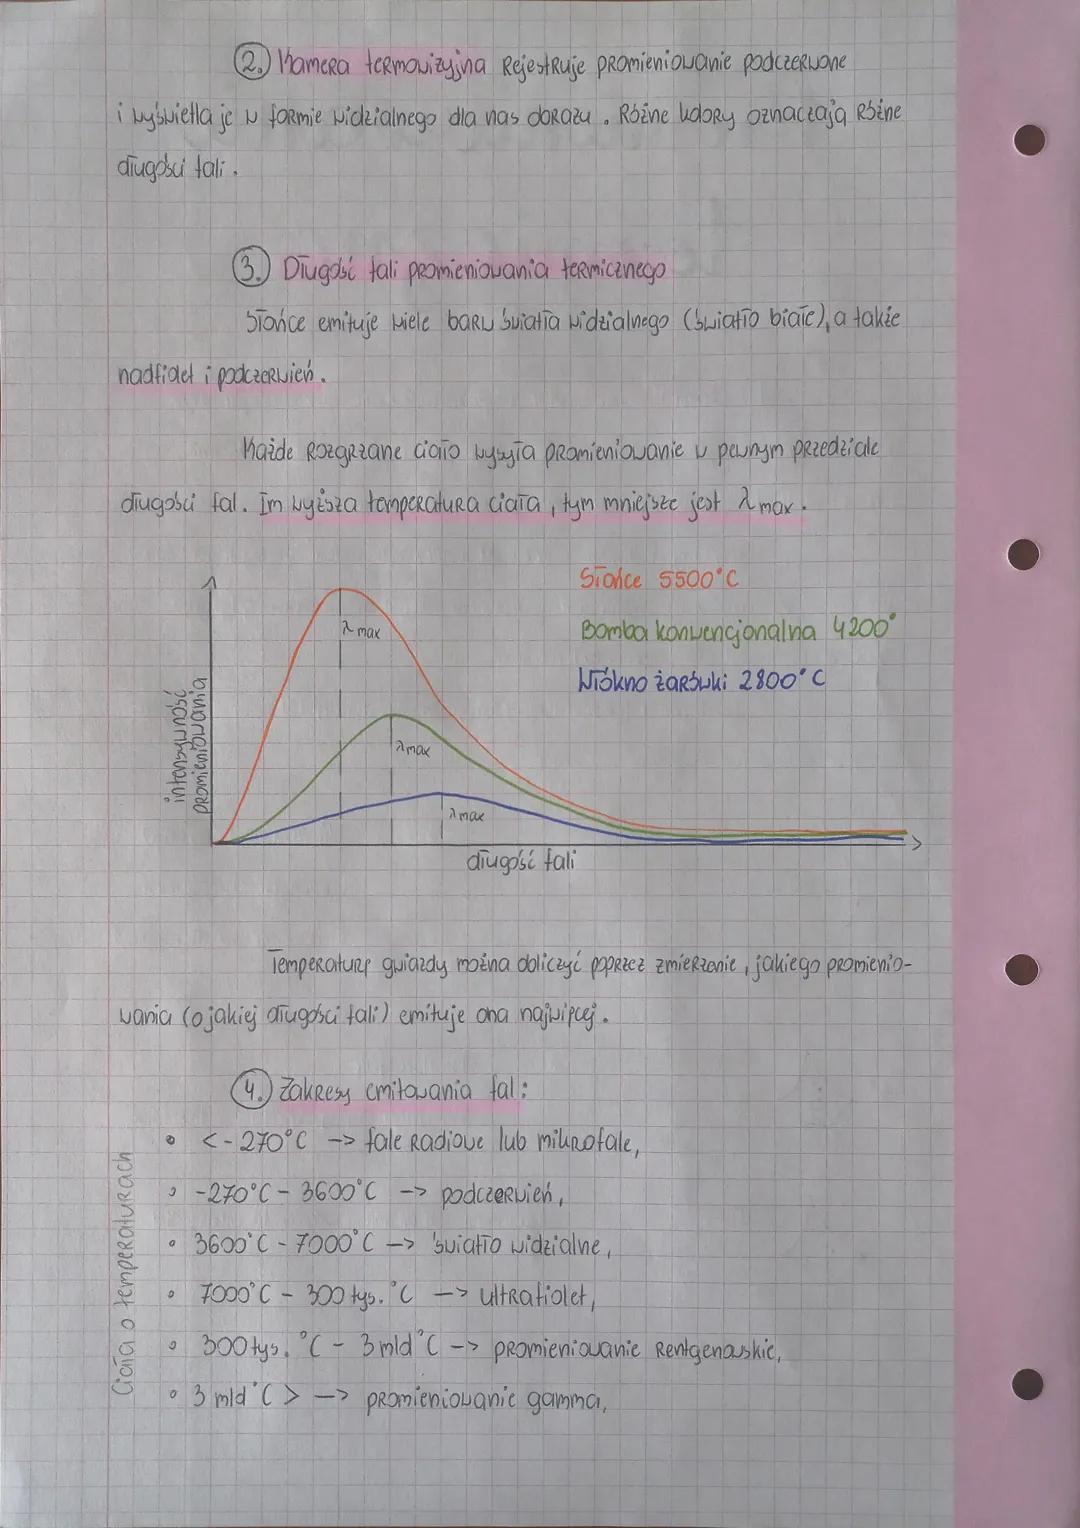 2. Kamera termowizyjna Rejestruje promieniowanie podczerwone
i wyświetla je w formie widzialnego dla nas obrazu. Różne kolory oznaczają różne
długości fali.
3. Długość fali promieniowania termicznego
Słońce emituje wiele barw światła widzialnego (światło białe), a także
nadfiolet i podczerwień.
Każde rozgrzane ciało wysyła promieniowanie w pewnym przedziale
długości fal. Im wyższa temperatura ciała, tym mniejsze jest λ max.
Słońce 5500°C
Bomba konwencjonalna 4200°
Włókno żarówki 2800°C
λ max
λ max
λ max
intensywność
promieniowania
długość fali
Temperaturę gwiazdy można obliczyć poprzez zmierzenie, jakiego promienio-
wania (o jakiej długości fali) emituje ona najwięcej.
4. Zakresy emitowania fal:
Ciała o temperaturach
• < -270°C -> fale radiowe lub mikrofale,
• -270°C - 3600°C -> podczerwień,
• 3600°C - 7000°C -> światło widzialne,
• 7000°C - 300 tys. °C -> ultrafiolet,
• 300 tys. °C - 3 mld °C -> promieniowanie Rentgenowskie,
• 3 mld °C > -> promieniowanie gamma,